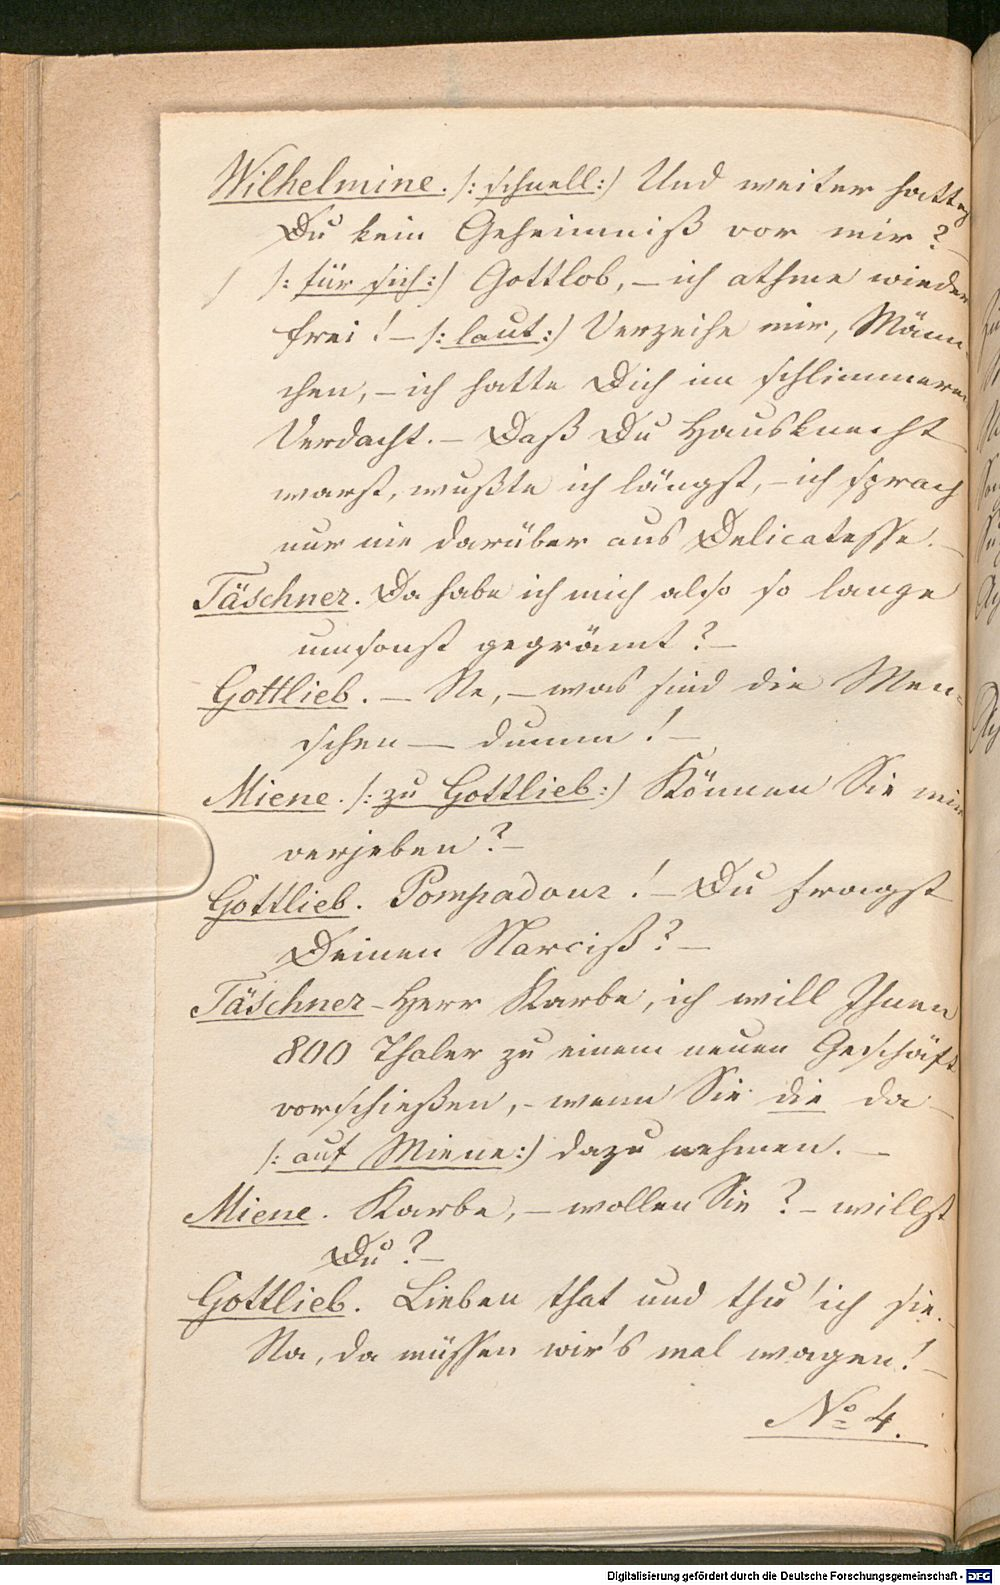 Wilhelmine. /: schnell :/ Und weiter hattest
Du kein Geheimniß vor mir? –
/: für sich :/ Gottlob, – ich athme wieder
frei! – /: laut :/ Verzeihe mir, Männ-
chen, – ich hatte Dich im schlimmeren
Verdacht. – Daß Du Hausknecht
warst, wußte ich längst, – ich sprach
nur nie darüber aus Delicatesse. –
Täschner. Da habe ich mich also so lange
umsonst gegrämt? –
Gottlieb. – Ne, – was sind die Men-
schen – dumm! –
Miene. /: zu Gottlieb :/ Können Sie mir
verjeben? –
Gottlieb. Pompadour! – Du fragst
Deinen Narciß? –
Täschner – Herr Karbe, ich will Ihnen
800 Thaler zu einem neuen Geschäft
vorschießen, – wenn Sie die da –
/: auf Miene :/ dazu nehmen. –
Miene. Karbe, – wollen Sie? – willst
Du? –
Gottlieb. Lieben that und thu' ich sie. –
Na, da müssen wir's mal wagen! –
No 4.
Digitalisierung gefördert durch die Deutsche Forschungsgemeinschaft - DFG